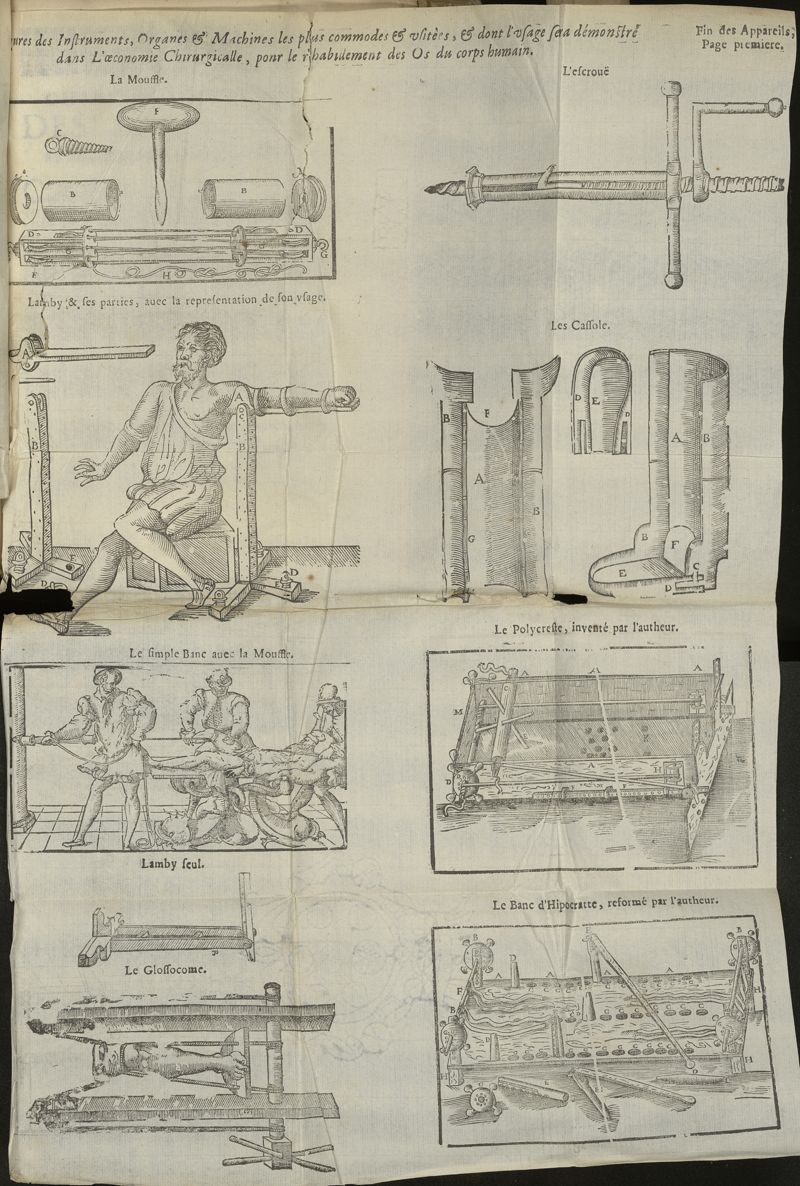 ures des Inſtruments, Organes & Machines les plus commodes & vſitèrs, & dont l'vſage ſera démonſtré
dans L'œconomie Chirurgicalle, pour le rhabillement des Os du corps humain.
Fin des Appareils,
Page premiere.
La Mouffle.
C
F
B
B
D
D
G
F
H
L'eſcrouë
Lamby & ſes parties, auec la repreſentation de ſon vſage.
A
A
B
B
F
D
D
E
Les Caſſole.
B
F
A
B
G
D
E
D
A
B
B
F
E
C
D
Le ſimple Banc auec la Mouffle.
Le Polycreſte, inventé par l'autheur.
A
A
M
A
H
D
Lamby ſeul.
Le Banc d'Hipocratte, reformé par l'autheur.
B
B
D
A
A
F
H
B
H
H
Le Gloſſocome.